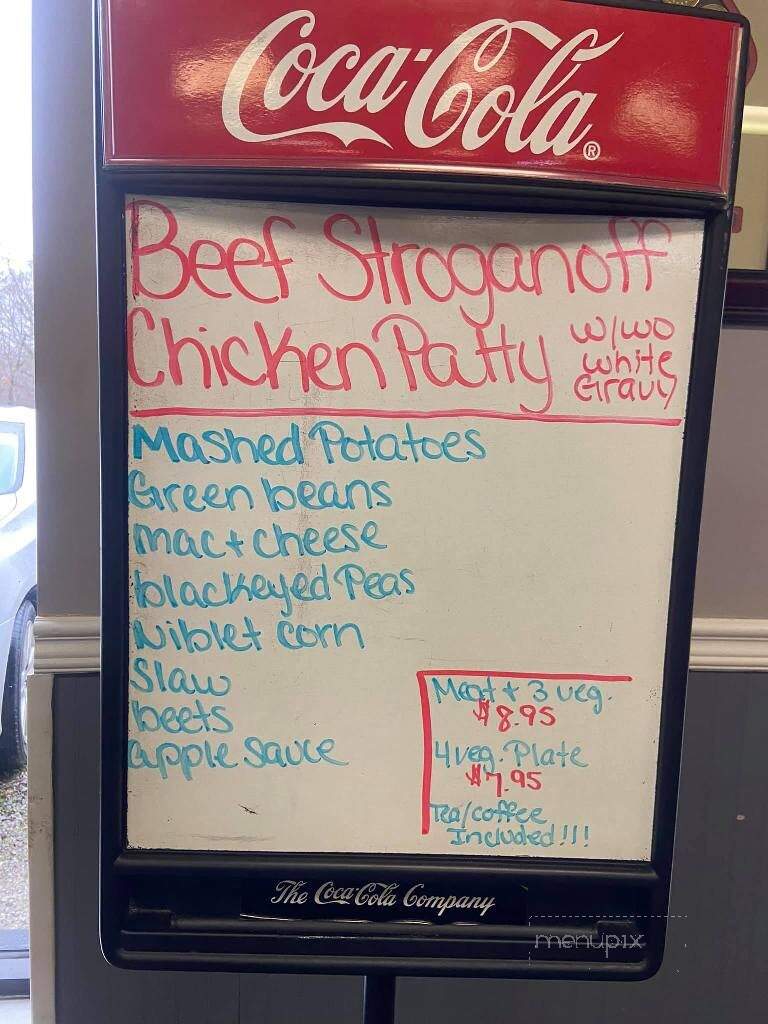 Coca-Cola®
Beef Stroganoff
Chicken Patty w/wo
white
Gravy
Mashed Potatoes
Green beans
mac + cheese
blackeyed Peas
Niblet corn
Slaw
beets
apple sauce
Meat + 3 veg.
$8.95
4 veg. Plate
$7.95
Tea/coffee
Included!!!
The Coca-Cola Company
menupix